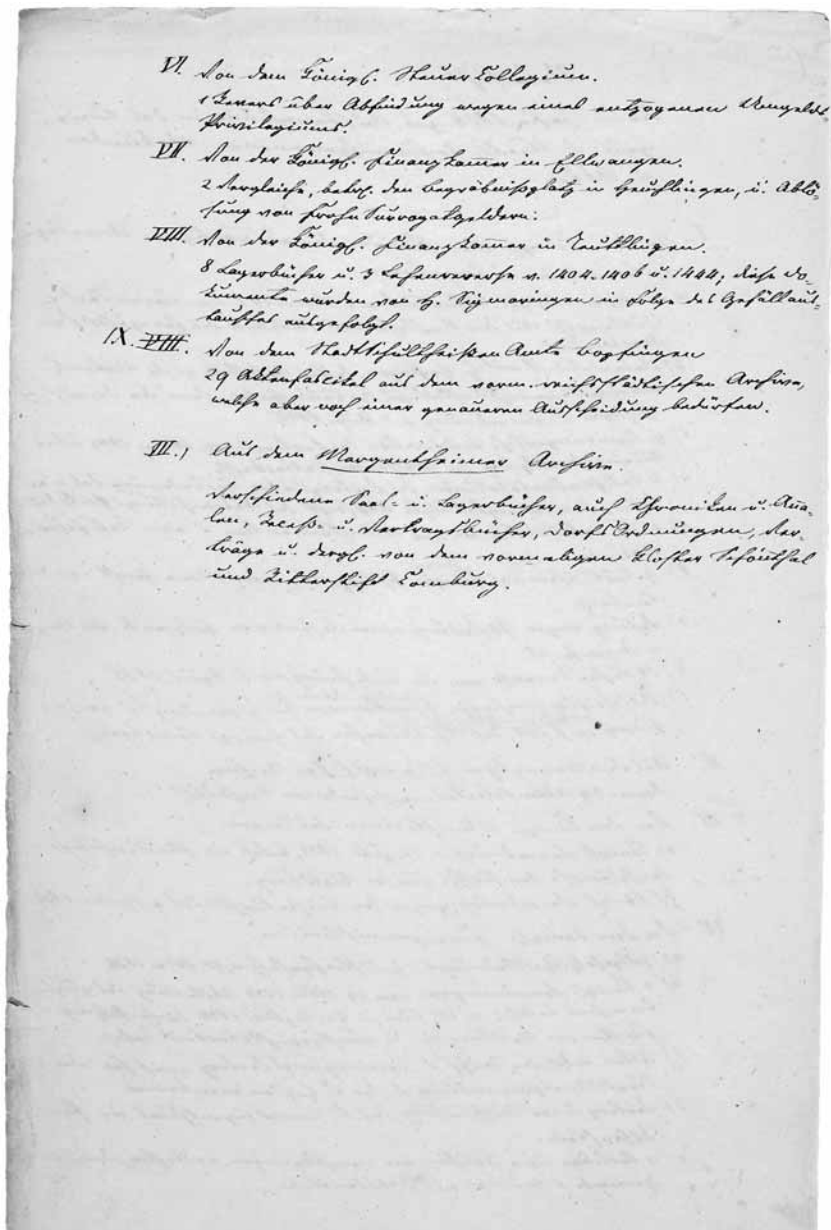 VI. Von dem Königl. Steuer Collegium.
1 Revers über Abfindung wegen eines entzogenen Umgelds
Privilegiums.
VII. Von der Königl. Finanzkammer in Ellwangen.
2 Vergleiche, betr. den Begräbnißplatz in Heuchlingen, u. Ablö-
sung von Frohn Surrogatgeldern.
VIII. Von der Königl. Finanzkammer in Reutlingen.
8 Lagerbücher u. 3 Lehenreverse v. 1404. 1406 u. 1444; diese Do-
kumente wurden von H. Sigmaringen in Folge des Gefällaus-
tausches ausgefolgt.
IX. VIII. Von dem Stadtschultheißen Amte Bopfingen
29 Aktenfascikel aus dem vorm. reichsstädtischen Archive,
welche aber noch einer genaueren Ausscheidung bedürfen.
III.) Aus dem Mergentheimer Archive.
Verschiedene Saal- u. Lagerbücher, auch Chroniken u. Anna-
len, Receß- u. Vertragsbücher, Dorfs Ordnungen, Ver-
träge u. dergl. von dem vormaligen Kloster Schönthal
und Ritterstift Comburg.